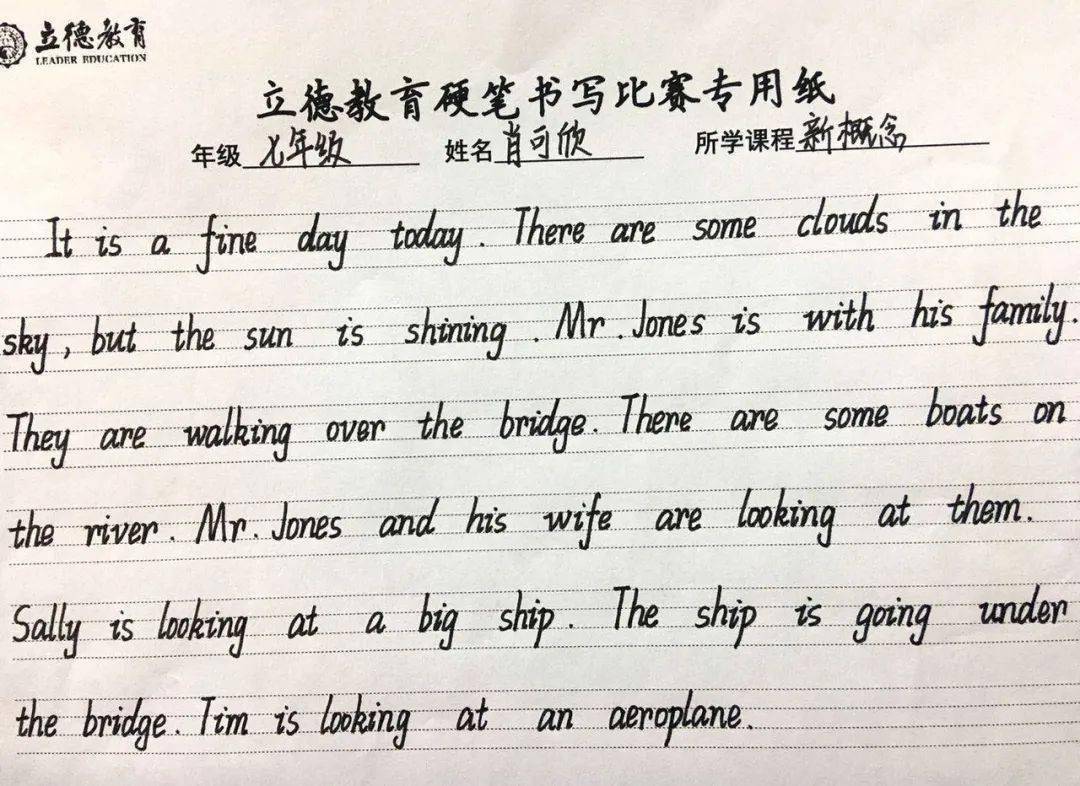 立德教育
LEADER EDUCATION
立德教育硬笔书写比赛专用纸
年级 七年级 姓名 肖可欣 所学课程 新概念
It is a fine day today. There are some clouds in the
sky, but the sun is shining. Mr. Jones is with his family.
They are walking over the bridge. There are some boats on
the river. Mr. Jones and his wife are looking at them.
Sally is looking at a big ship. The ship is going under
the bridge. Tim is looking at an aeroplane.